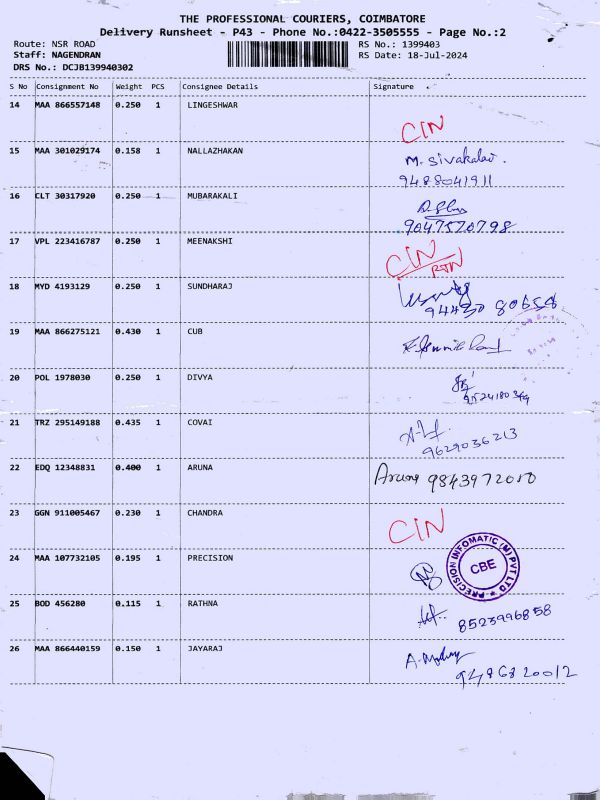 THE PROFESSIONAL COURIERS, COIMBATORE
Delivery Runsheet - P43 - Phone No.:0422-3505555 - Page No.:2
Route: NSR ROAD RS No.: 1399403
Staff: NAGENDRAN RS Date: 18-Jul-2024
DRS No.: DCJB139940302
S No Consignment No Weight PCS Consignee Details Signature
14 MAA 866557148 0.250 1 LINGESHWAR
CIN
15 MAA 301029174 0.158 1 NALLAZHAKAN
M. Sivakalai.
9488041911
16 CLT 30317920 0.250 1 MUBARAKALI
9047570798
17 VPL 223416787 0.250 1 MEENAKSHI
CIN
RTN
18 MYD 4193129 0.250 1 SUNDHARAJ
94430 80658
19 MAA 866275121 0.430 1 CUB
20 POL 1978030 0.250 1 DIVYA
21 TRZ 295149188 0.435 1 COVAI
9629036213
22 EDQ 12348831 0.400 1 ARUNA
Aruna 9843972010
23 GGN 911005467 0.230 1 CHANDRA
CIN
24 MAA 107732105 0.195 1 PRECISION
PRECISION INFOMATIC (M) PVT LTD
CBE
25 BOD 456280 0.115 1 RATHNA
8523996858
26 MAA 866440159 0.150 1 JAYARAJ
9486820012